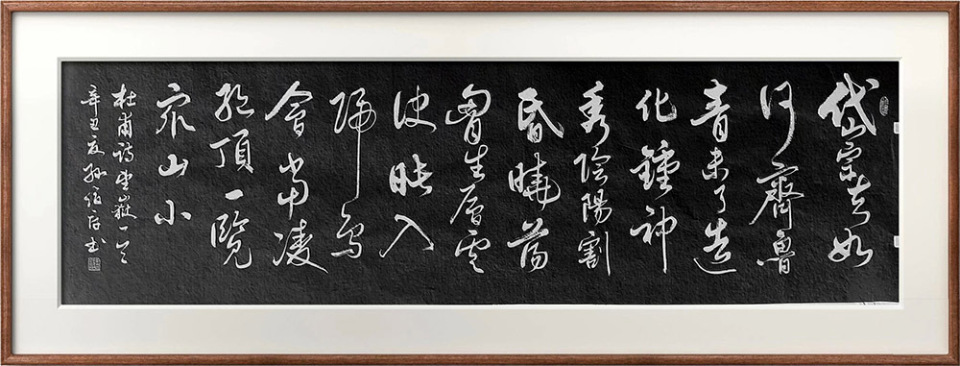 岱宗夫如
何齊魯
青未了造
化鍾神
秀陰陽割
昏曉蕩
胷生層雲
决眥入
歸鳥
會當凌
絕頂一覽
眾山小
杜甫詩望嶽一首
辛丑夏孫書